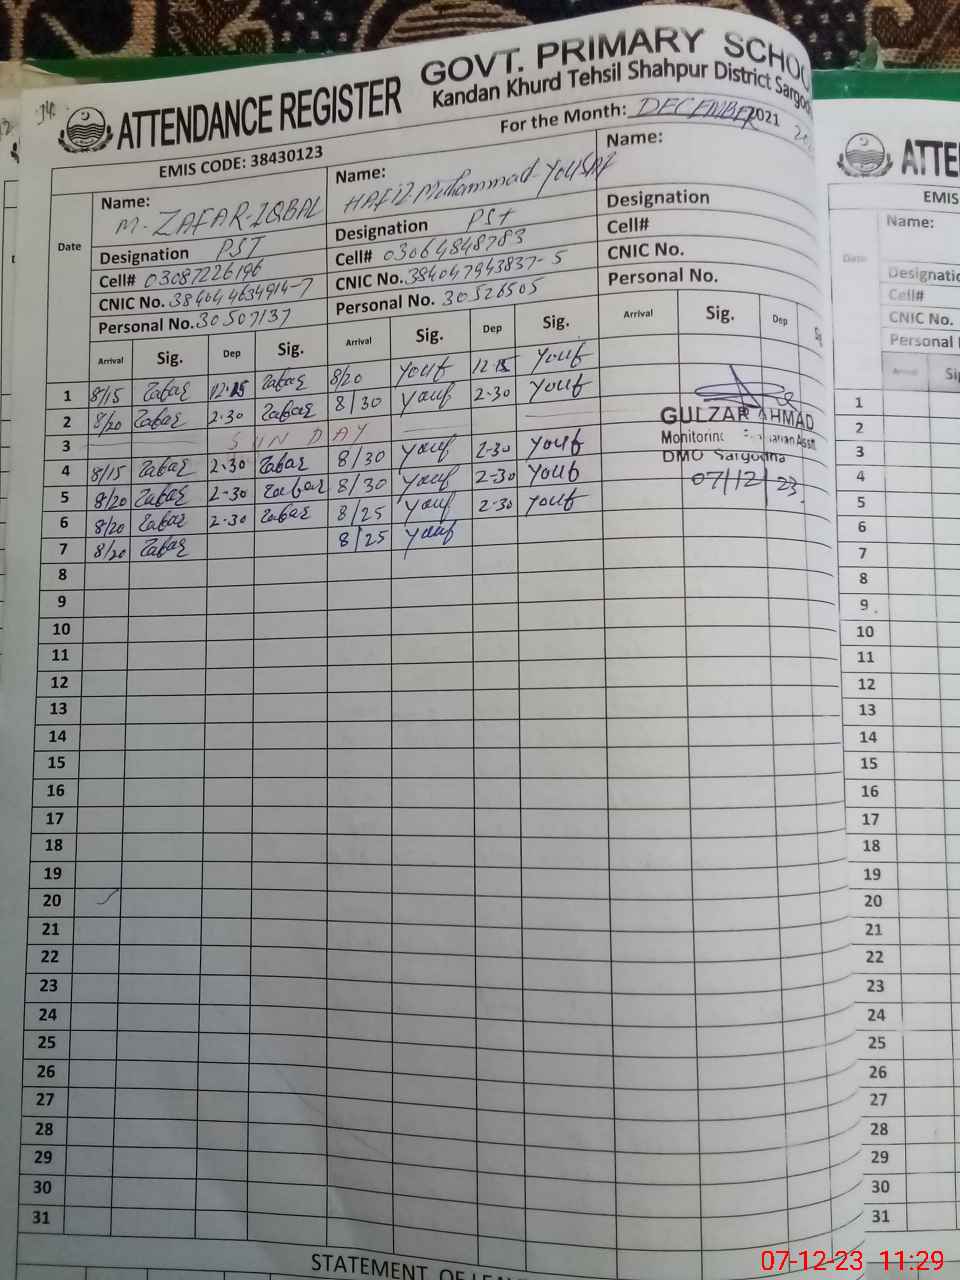 ATTENDANCE REGISTER GOVT. PRIMARY SCHOO
Kandan Khurd Tehsil Shahpur District Sargod
EMIS CODE: 38430123 For the Month: DECEMBER 2021
Name: M. ZAFAR IQBAL
Designation PST
Cell# 03087226196
CNIC No. 384044634914-7
Personal No. 30507137
Name: HAFIZ Muhammad YOUSAF
Designation PST
Cell# 03064848783
CNIC No. 384047943837-5
Personal No. 30526505
Name:
Designation
Cell#
CNIC No.
Personal No.
Date Arrival Sig. Dep Sig. Arrival Sig. Dep Sig. Arrival Sig. Dep Sig.
1 8/15 Zafar 12.15 Zafar 8/20 Youf 12.15 Youf
2 8/20 Zafar 2.30 Zafar 8/30 Youf 2.30 Youf
3 SUNDAY
4 8/15 Zafar 2.30 Zafar 8/30 Youf 2.30 Youf
5 8/20 Zafar 2-30 Zafar 8/30 Youf 2-30 Youf
6 8/20 Zafar 2.30 Zafar 8/25 Youf 2.30 Youf
7 8/20 Zafar 8/25 Youf
GULZAR AHMAD
Monitoring
DMO Sargodha
07/12/23
8
9
10
11
12
13
14
15
16
17
18
19
20
21
22
23
24
25
26
27
28
29
30
31
STATEMENT OF LEA
ATTE
EMIS
Name:
Date
Designatio
Cell#
CNIC No.
Personal
Arrival Sig
1
2
3
4
5
6
7
8
9
10
11
12
13
14
15
16
17
18
19
20
21
22
23
24
25
26
27
28
29
30
31
07-12-23 11:29